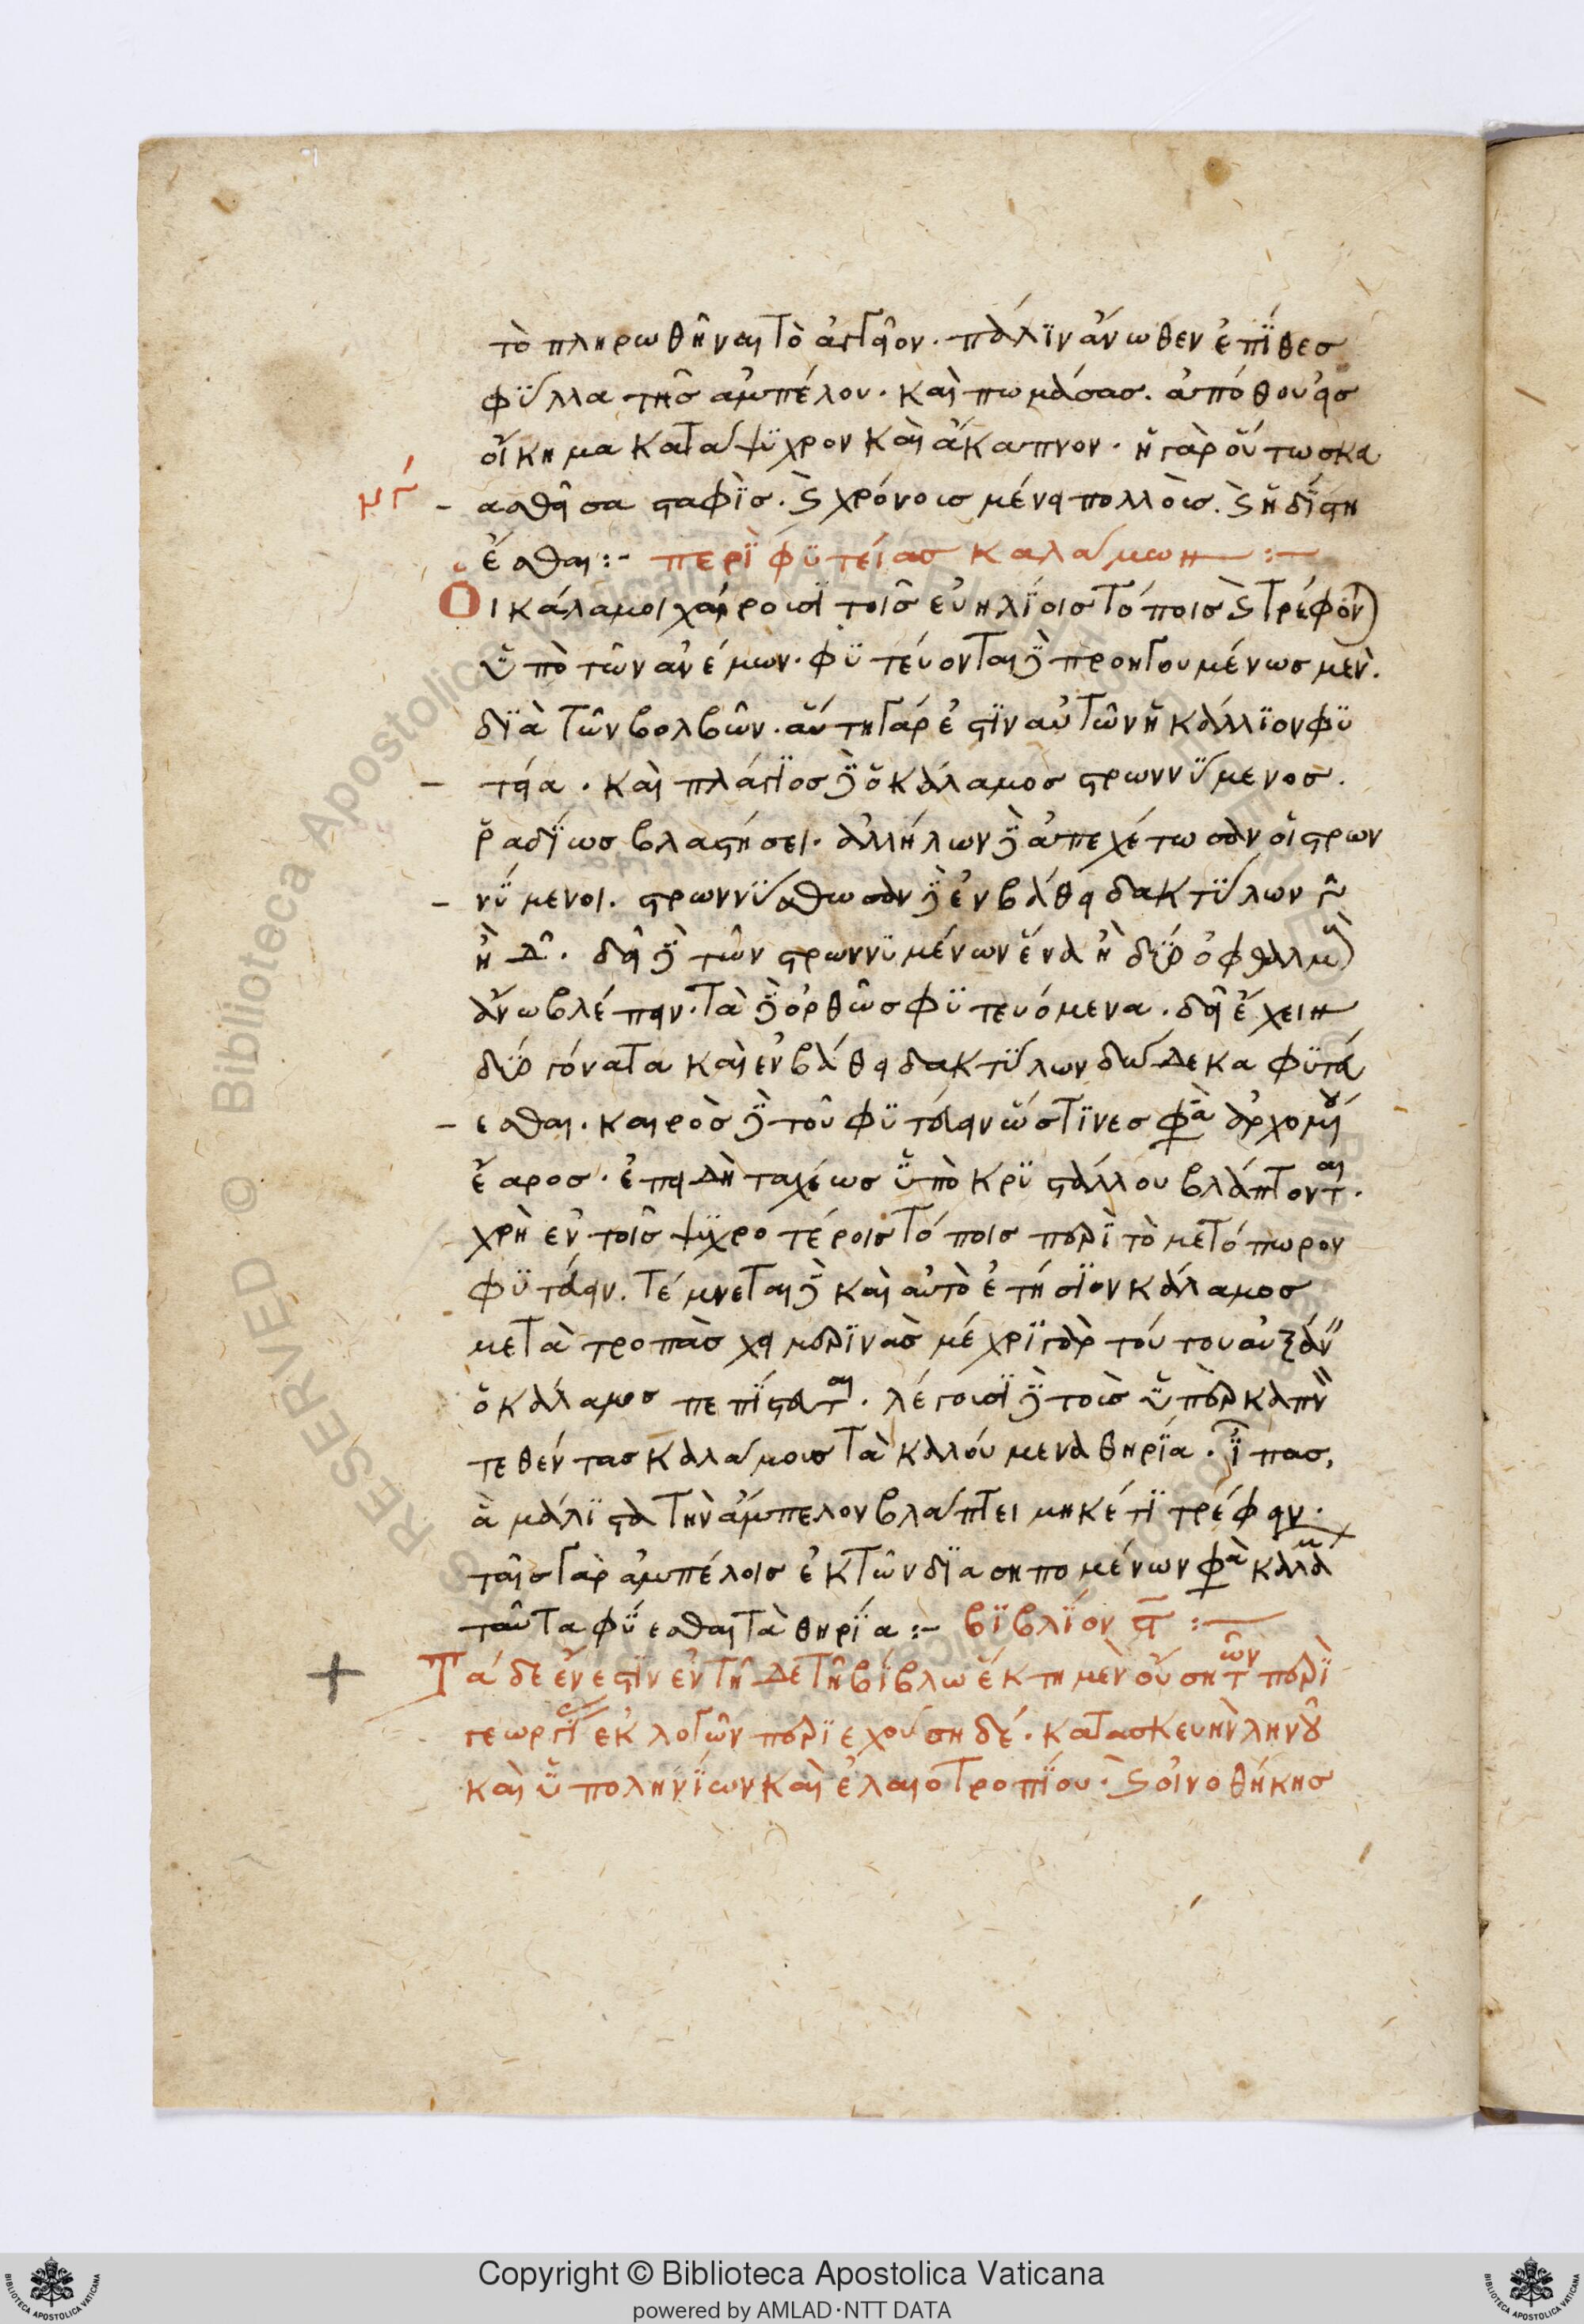 τὸ πληρωθῆναι τὸ ἀγγεῖον. πάλϊν ἄνωθεν ἐπϊθες
φϋλλα τῆς ἀμπέλου. καὶ πωμάσας. ἀπόθου εἰς
οἴκημα καταψϋχρον καὶ ἄκαπνον. ἡ γὰρ οὕτω σκε
ασθεῖσα σταφὶς. καὶ χρόνοις μένει πολλοῖς. καὶ ἡδίστη
μγ
έσθαι:- περὶ φϋτείας καλάμων:-
Οἱ κάλαμοι χαίρουσϊ τοῖς εὐηλίοις τόποις καὶ τρέφον)
ὑπὸ τῶν ἀνέμων. φϋτεύονται δὲ προηγουμένως μὲν.
δϊὰ τῶν βολβῶν. αὕτη γάρ ἐστϊν αὐτῶν ἡ κάλλϊον φϋ
τεία. καὶ πλάγϊος δὲ ὁ κάλαμος στρωννϋμενος.
ῥαδϊως βλαστήσει. ἀλλήλων δὲ ἀπεχέτωσαν οἱ στρων
νϋμενοι. στρωννϋσθωσαν δὲ ἐν βάθει δακτϋλων γ
ἢ δ. δεῖ δὲ τῶν στρωννϋμένων ἕνα ἢ δϋο ὀφθαλμοὺ)
ἄνω βλέπειν. τὰ δὲ ὀρθῶς φϋτευόμενα. δεῖ ἔχειν
δϋο γόνατα καὶ ἐν βάθει δακτϋλων δώδεκα φϋτεύ
εσθαι. καιρὸς δὲ τοῦ φϋτεύειν ὥς τϊνες φα ἀρχομέ
ἔαρος. ἐπειδὴ ταχέως ὑπὸ κρϋστάλλου βλάπτονται.
χρὴ ἐν τοῖς ψϋχροτέροις τόποις περὶ τὸ μετόπωρον
φϋτεύειν. τέμνεται δὲ καὶ αὐτὸ ἐτήσϊον κάλαμος
μετὰ τροπὰς χειμερϊνὰς μέχρϊ γὰρ τούτου αὐξάν
ὁ κάλαμος πεπϊσται. λέγουσϊ δὲ τοὺς ὑπὲρ καπν
τεθέντας καλάμους τὰ καλούμενα θηρϊα. ἶπας,
ἃ μάλϊστα τὴν ἄμπελον βλάπτει μηκέτϊ τρέφειν.
ταῖς γὰρ ἀμπέλοις ἐκ τῶν δϊασηπομένων φα καλαμ
ταῦτα φϋεσθαι τὰ θηρϊα:- βϊβλϊον ϛ:-
Τάδε ἔνεστϊν ἐν τῇδε τῇ βίβλω ἕκτη μὲν οὔση τῶν περὶ
γεωργϊ ἐκλογῶν περϊεχούση δέ. κατασκευὴν ληνοῦ
καὶ ὑποληνϊων καὶ ἐλαιοτροπϊου. καὶ οἰνοθήκης
RESERVED © Biblioteca Apostolica Vaticana
Copyright © Biblioteca Apostolica Vaticana
powered by AMLAD·NTT DATA